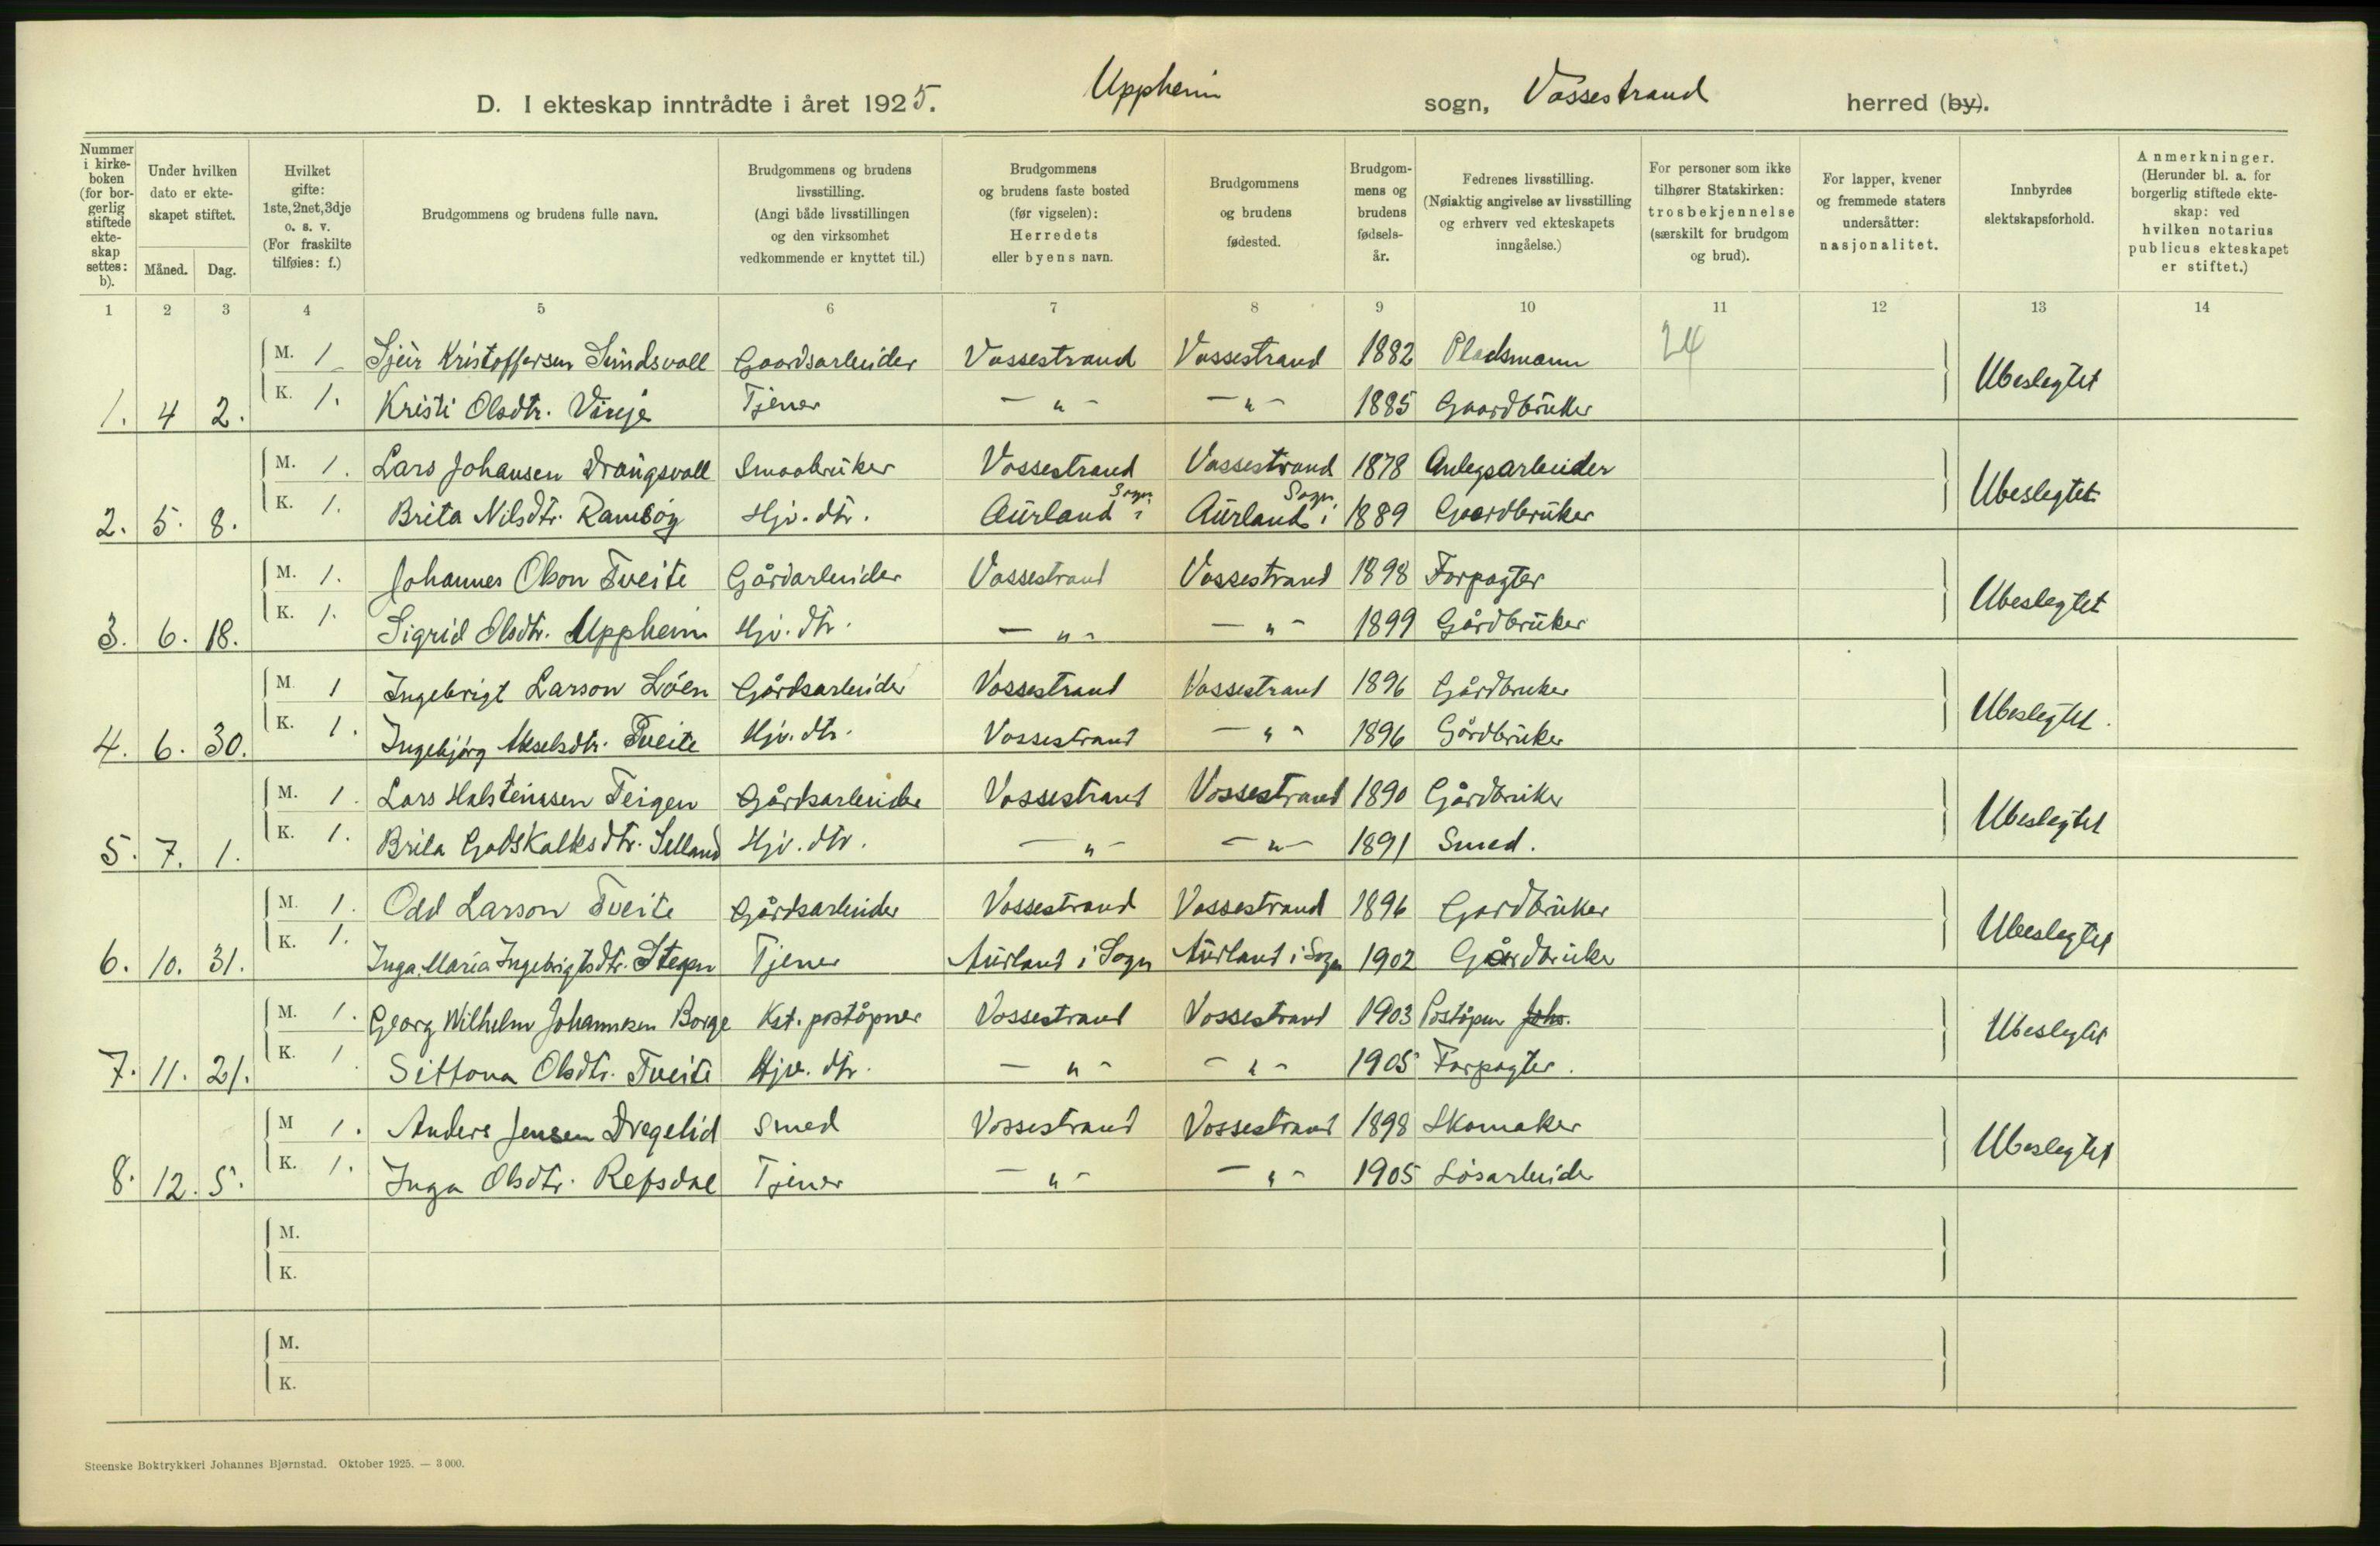 D. I ekteskap inntrådte i året 1925. Uppheim sogn, Vossestrand herred (by).
Nummer i kirke-boken (for bor-gerlig stiftede ekte-skap settes: b).
Under hvilken dato er ekte-skapet stiftet.
Måned. Dag.
Hvilket gifte: 1ste, 2net, 3dje o. s. v. (For fraskilte tilføies: f.)
Brudgommens og brudens fulle navn.
Brudgommens og brudens livsstilling. (Angi både livsstillingen og den virksomhet vedkommende er knyttet til.)
Brudgommens og brudens faste bosted (før vigselen): Herredets eller byens navn.
Brudgommens og brudens fødested.
Brudgom-mens og brudens fødsels-år.
Fedrenes livsstilling. (Nøiaktig angivelse av livsstilling og erhverv ved ekteskapets inngåelse.)
For personer som ikke tilhører Statskirken: trosbekjennelse (særskilt for brudgom og brud).
For lapper, kvener og fremmede staters undersåtter: nasjonalitet.
Innbyrdes slektskapsforhold.
Anmerkninger. (Herunder bl. a. for borgerlig stiftede ekte-skap: ved hvilken notarius publicus ekteskapet er stiftet.)
1 2 3 4 5 6 7 8 9 10 11 12 13 14
M. 1 Sjur Kristoffersen Sundsvall Gaardsarbeider Vossestrand Vossestrand 1882 Pladsmann 24 Ubeslegtet
1. 4 2. K. 1. Kristi Olsdtr. Vinje Tjener — " — — " — 1885 Gaardbruker
M. 1. Lars Johansen Draugsvoll Smaabruker Vossestrand Vossestrand 1878 Anlegsarbeider Ubeslegtet
2. 5. 8. K. 1. Brita Nilsdtr. Ramsøy Hjv. dtr. Aurland i Sogn Aurland i Sogn 1889 Gaardbruker
M. 1. Johannes Olson Tveite Gårdarbeider Vossestrand Vossestrand 1898 Forpagter Ubeslegtet
3. 6. 18. K. 1. Sigrid Olsdtr. Uppheim Hjv. dtr. — " — — " — 1899 Gårdbruker
M. 1 Ingebrigt Larson Løen Gårdsarbeider Vossestrand Vossestrand 1896 Gårdbruker Ubeslegtet.
4. 6. 30. K. 1. Ingebjørg Akselsdtr. Tveite Hjv. dtr. Vossestrand — " — 1896 Gårdbruker
M. 1. Lars Halsteinsen Teigen Gårdsarbeider Vossestrand Vossestrand 1890 Gårdbruker Ubeslegtet
5. 7. 1. K. 1. Brita Godskalksdtr. Selland Hjv. dtr. — " — — " — 1891 Smed.
M. 1. Odd Larson Tveite Gårdsarbeider Vossestrand Vossestrand 1896 Gardbruker Ubeslegtet
6. 10. 31. K. 1. Inga Maria Ingebrigtsdtr. Stegen Tjener Aurland i Sogn Aurland i Sogn 1902 Gårdbruker
M. 1. Georg Wilhelm Johannesen Borge Kst. poståpner Vossestrand Vossestrand 1903 Poståpn Johs. Ubeslegtet
7. 11. 21. K. 1 Olsdtr. Tveite Hjv. dtr. — " — — " — 1905 Forpagter.
M 1. Anders Jensen Dregelid Smed Vossestrand Vossestrand 1898 Skomaker Ubeslegtet
8. 12. 5. K. 1. Inga Olsdtr. Refsdal Tjener — " — — " — 1905 Løsarbeider
M.
K.
M.
K.
Steenske Boktrykkeri Johannes Bjørnstad. Oktober 1925. — 3 000.